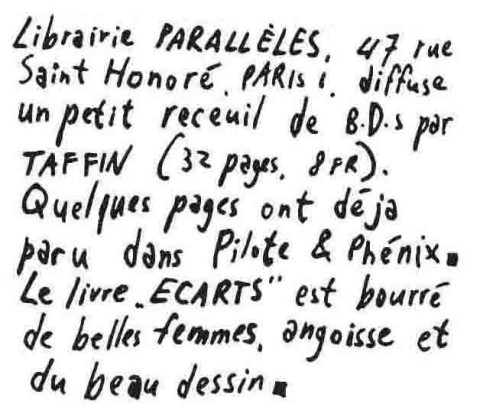 Librairie PARALLÈLES, 47 rue
Saint Honoré, PARIS 1, diffuse
un petit receuil de B.D.s par
TAFFIN (32 pages, 8 FR).
Quelques pages ont déja
paru dans Pilote & Phénix.
Le livre „ECARTS” est bourré
de belles femmes, angoisse et
du beau dessin.